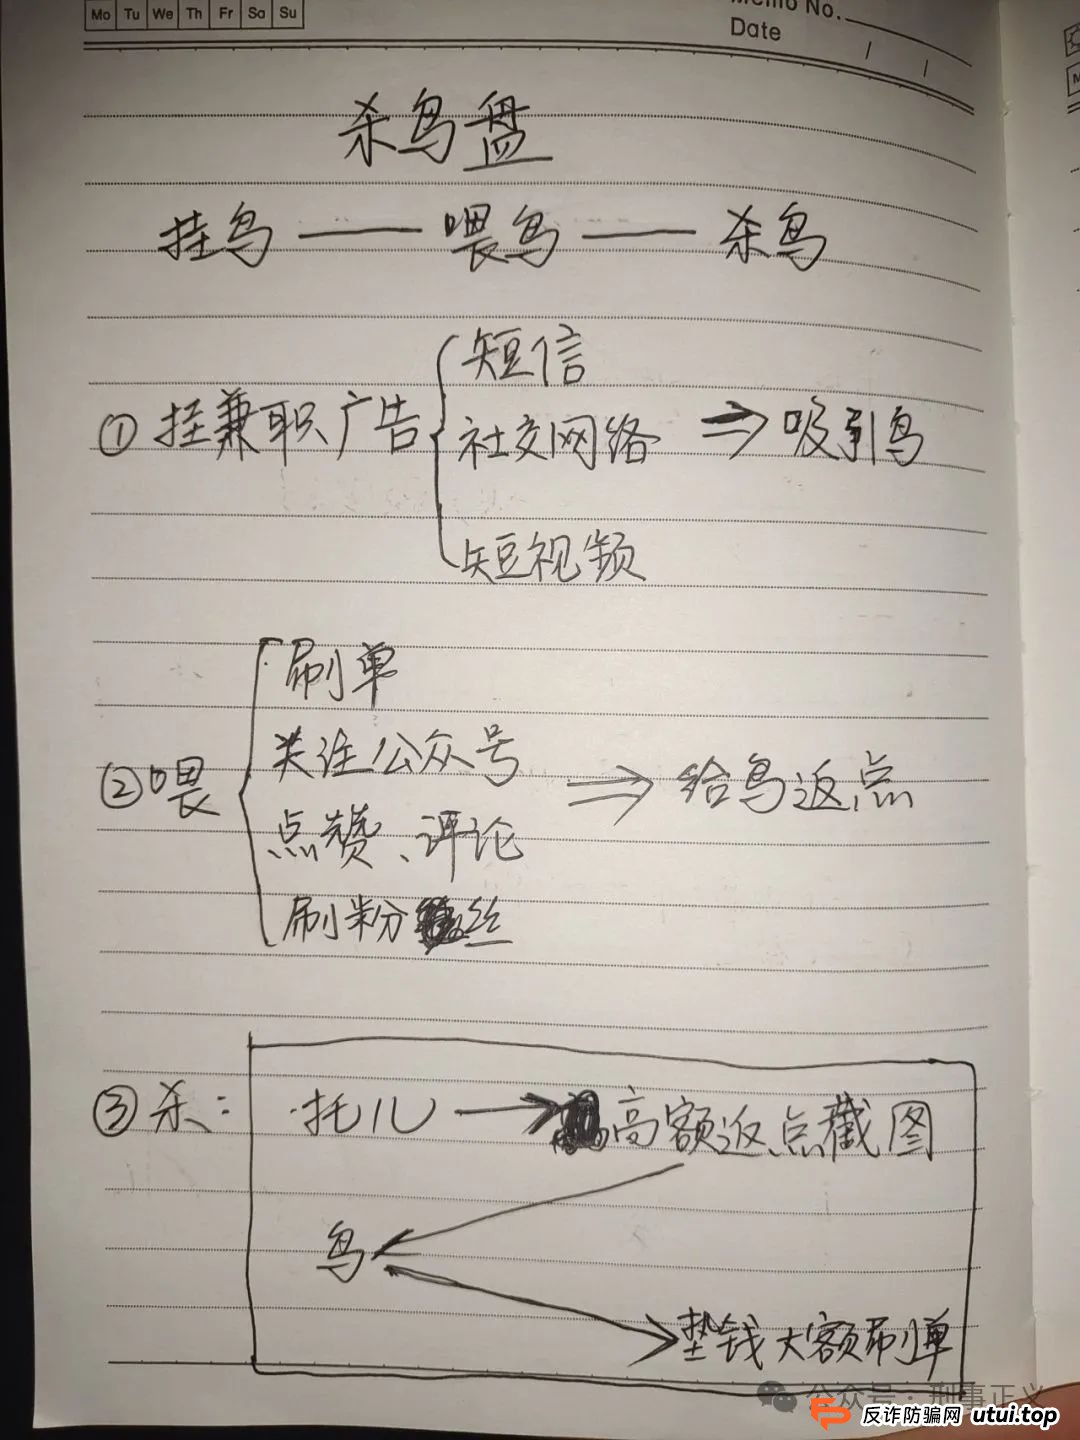 Mo Tu We Th Fr Sa Su
Memo No.
Date / /
杀鸟盘
挂鸟 — 喂鸟 — 杀鸟
① 挂兼职广告
短信
社交网络
短视频
⇒ 吸引鸟
② 喂
刷单
关注公众号
点赞、评论
刷粉丝
⇒ 给鸟返点
③ 杀:
托儿 → 高额返点截图
鸟
垫钱大额刷单
公众号·刑事正义
反诈防骗网 utui.top